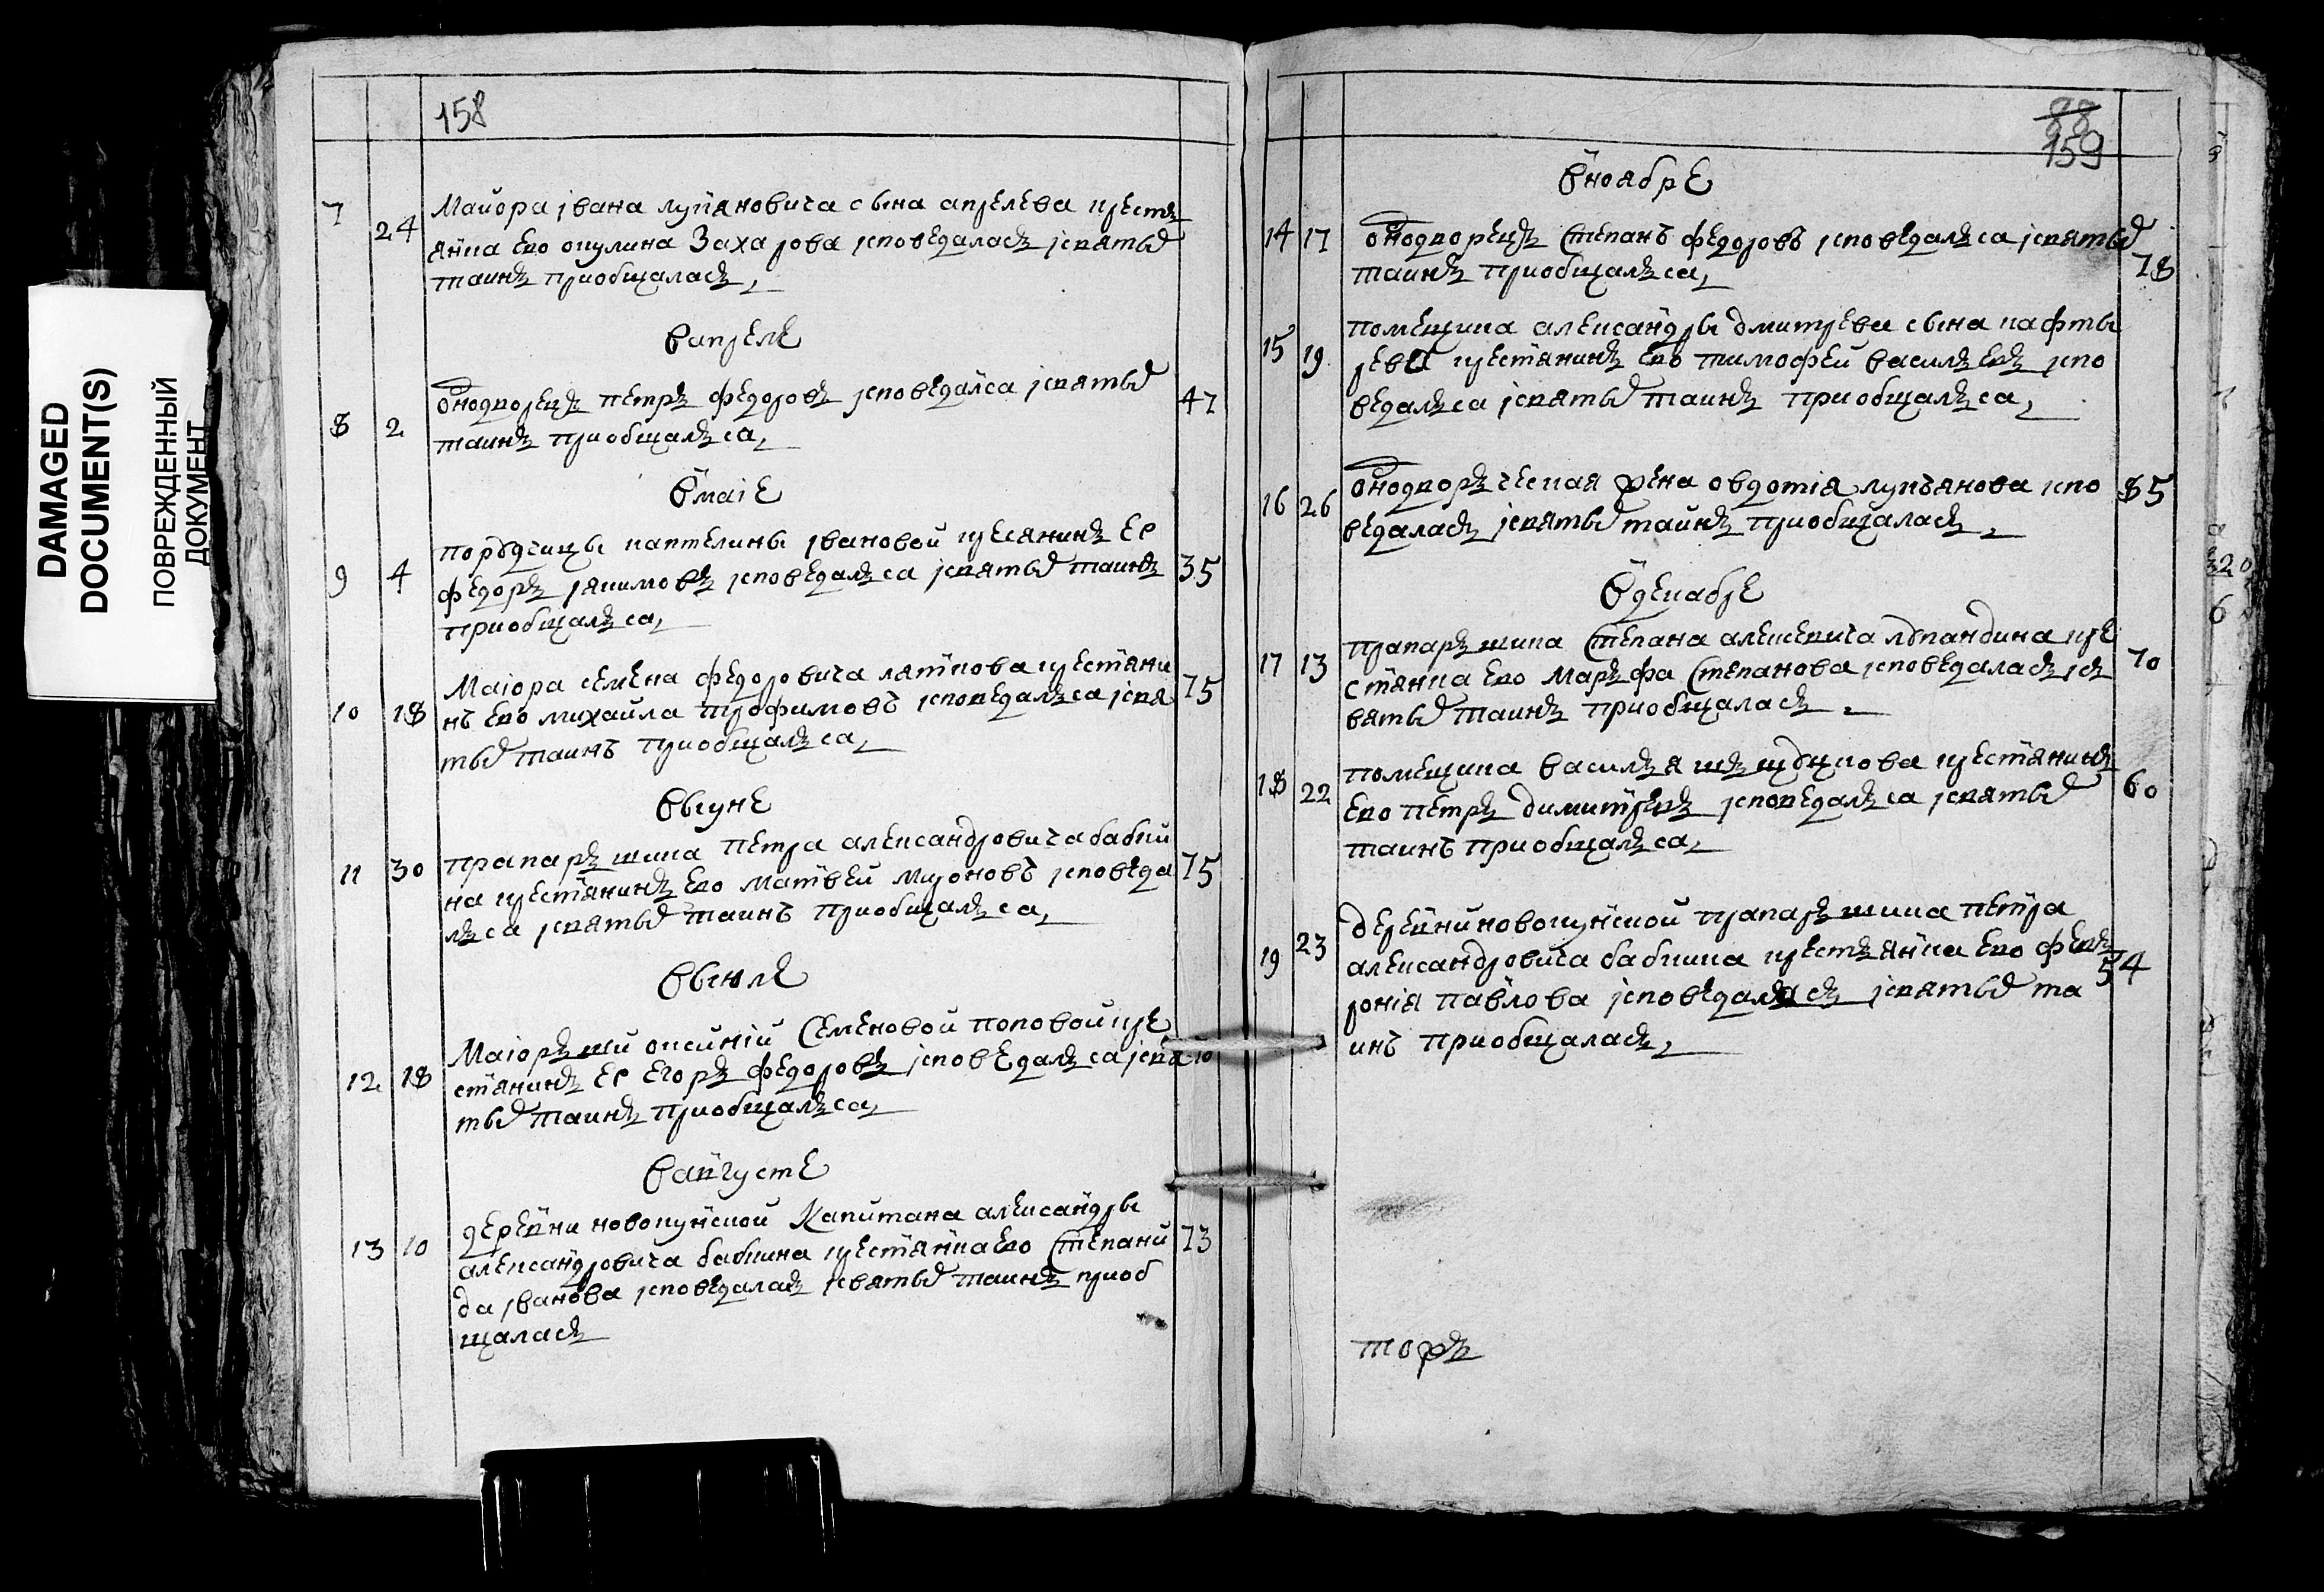 DAMAGED
DOCUMENT(S)
ПОВРЕЖДЕННЫЙ
ДОКУМЕНТ
158
7 24 Маиора івана лупяновича сына апрелева крестъ
янка ево окулина Захарова ісповедаласъ ісвятыхъ
таинъ приобщаласъ,
вапреле
8 2 однодворецъ петръ федоровъ ісповедался ісвятыхъ 47
таинъ приобщалъса,
вмаіе
9 4 порутчицы каптелины івановой кресянинъ ее
федоръ якимовъ ісповедалъса ісвятыхъ таинъ 35
приобщалъса,
10 18 Маіора семена федоровича лятпова крестяни 75
нъ ево михайла трофимовъ ісповедалъса ісвя
тыхъ таинъ приобщалъса,
выюне
11 30 прапаръшика петра александровича бабки 75
на крестянинъ ево матвеи мироновъ ісповеда
лъса ісвятыхъ таинъ приобщалъса,
выюле
12 18 Маіоръши оксиніи Семеновой поповой кре
стянинъ ее егоръ федоровъ ісповедалъса ісвя 10
тыхъ таинъ приобщалъса,
вавгусте
13 10 деревни новокунской Капитана александры
александровича бабкина крестянка ево Степани 73
да іванова ісповедаласъ ісвятыхъ таинъ приоб
щаласъ
88
159
вноябре
14 17 однодворецъ Степанъ федоровъ ісповедалъса ісвятыхъ 78
таинъ приобщалъса,
15 19 помещика александры дмитрева сына кафты
рева крестянинъ ево тимофеи василъевъ іспо
ведалъса ісвятыхъ таинъ приобщалъса,
16 26 однодворъческая жена овдотія лукъянова іспо 85
ведаласъ ісвятыхъ таинъ приобщаласъ,
вдекабре
17 13 прапаръшика Степана алексевича лупандина кре 70
стянка ево Маръфа Степанова ісповедаласъ ісъ
вятыхъ таинъ приобщаласъ
18 22 помещика василъя шъщуцкова крестянинъ 60
ево петръ димитревъ ісповедалъса ісвятыхъ
таинъ приобщалъса,
19 23 деревни новокунской прапаръшика петра
александровича бабкина крестъянка ево февъ 54
ронія павлова ісповедаласъ ісвятыхъ та
инъ приобщаласъ,
торжъ